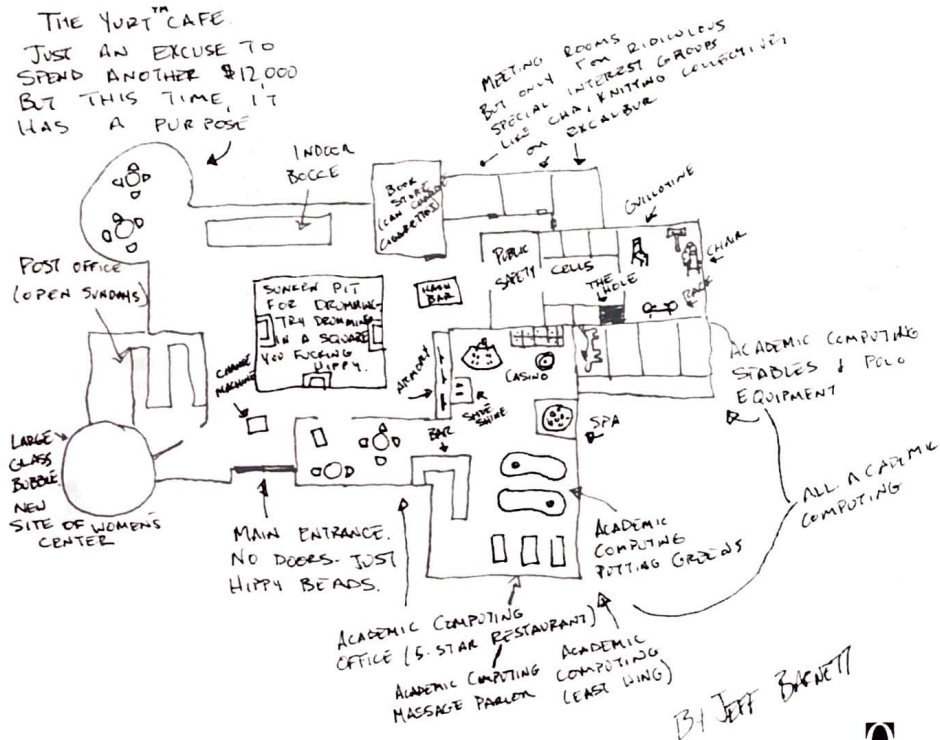 THE YURT™ CAFE.
JUST AN EXCUSE TO
SPEND ANOTHER $12,000
BUT THIS TIME, IT
HAS A PURPOSE
MEETING ROOMS
BUT ONLY FOR RIDICULOUS
SPECIAL INTEREST GROUPS
LIKE CHA, KNITTING COLLECTIVE,
OR EXCALIBUR
INDOOR
BOCCE
BOOK
STORE
(CAN CHARGE
CIGARETTES)
GUILLOTINE
CHAIR
RACK
PUBLIC
SAFETY
CELLS
THE
HOLE
POST OFFICE
(OPEN SUNDAYS)
SUNKEN PIT
FOR DRUMMING-
TRY DRUMMING
IN A SQUARE
YOU FUCKING
HIPPY.
HASH
BAR
CHANGE
MACHINE
ARMORY
CASINO
SHOE
SHINE
ACADEMIC COMPUTING
STABLES & POLO
EQUIPMENT
BAR
SPA
LARGE
GLASS
BUBBLE.
NEW
SITE OF WOMEN'S
CENTER
ALL ACADEMIC
COMPUTING
MAIN ENTRANCE.
NO DOORS. JUST
HIPPY BEADS.
ACADEMIC
COMPUTING
PUTTING GREENS
ACADEMIC COMPUTING
OFFICE (5-STAR RESTAURANT)
ACADEMIC COMPUTING
MASSAGE PARLOR
ACADEMIC
COMPUTING
(EAST WING)
BY JEFF BARNETT